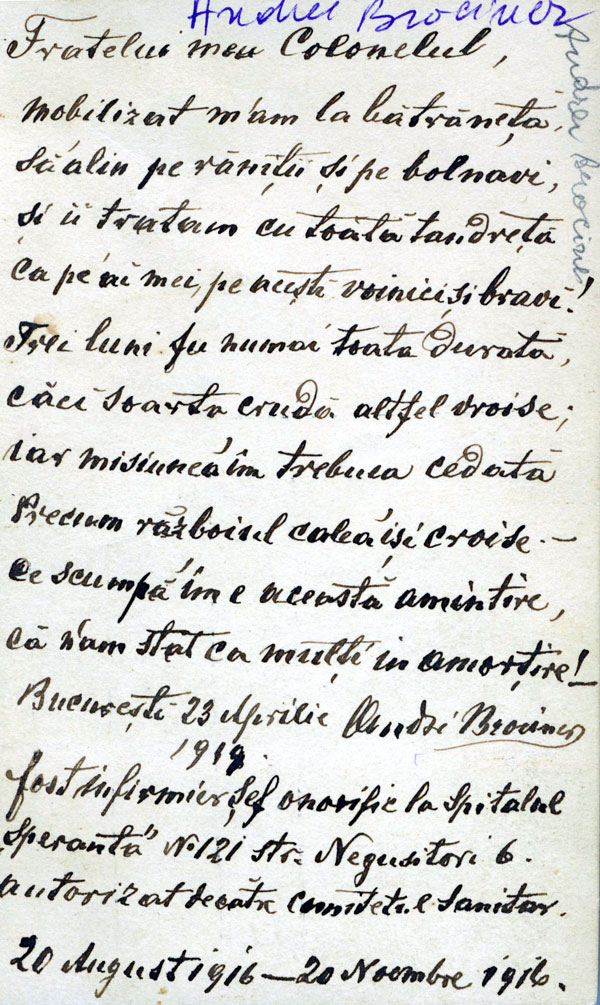 Andrei Brociner
Andrei Brociner
Fratelui meu Colonelul,
mobilizat m'am la bătrâneță,
să alin pe răniții și pe bolnavi,
și ii tratam cu toată tandreță
ca pe ai mei, pe acești voinici și bravi!
Trei luni fu numai toata durată,
căci soarta crudă altfel vroise;
iar misiunea îm trebuea cedată
Precum războiul calea își croise. —
Ce scumpă îm e această amintire,
că n'am stat ca mulți in amorțire! —
București 23 Aprilie Andrei Brociner
1919.
fost infirmier șef onorific la Spitalul
„Speranta" No 121 str. Negustitori 6.
autorizat decătre comitetul Sanitar.
20 August 1916 — 20 Noembre 1916.